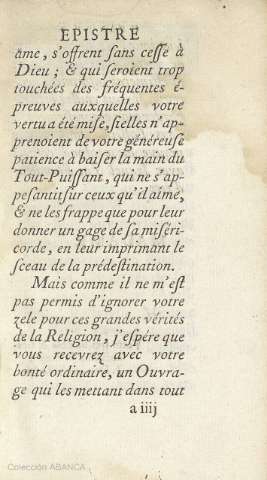 EPISTRE
ame, s'offrent sans cesse à
Dieu ; & qui seroient trop
touchées des fréquentes é-
preuves auxquelles votre
vertu a été mise, si elles n'ap-
prenoient de votre généreuse
patience à baiser la main du
Tout-Puissant, qui ne s'ap-
pesantit sur ceux qu'il aime,
& ne les frappe que pour leur
donner un gage de sa miséri-
corde, en leur imprimant le
sceau de la prédestination.
Mais comme il ne m'est
pas permis d'ignorer votre
zele pour ces grandes vérités
de la Religion, j'espére que
vous recevrez avec votre
bonté ordinaire, un Ouvra-
ge qui les mettant dans tout
a iiij
Colección ABANCA